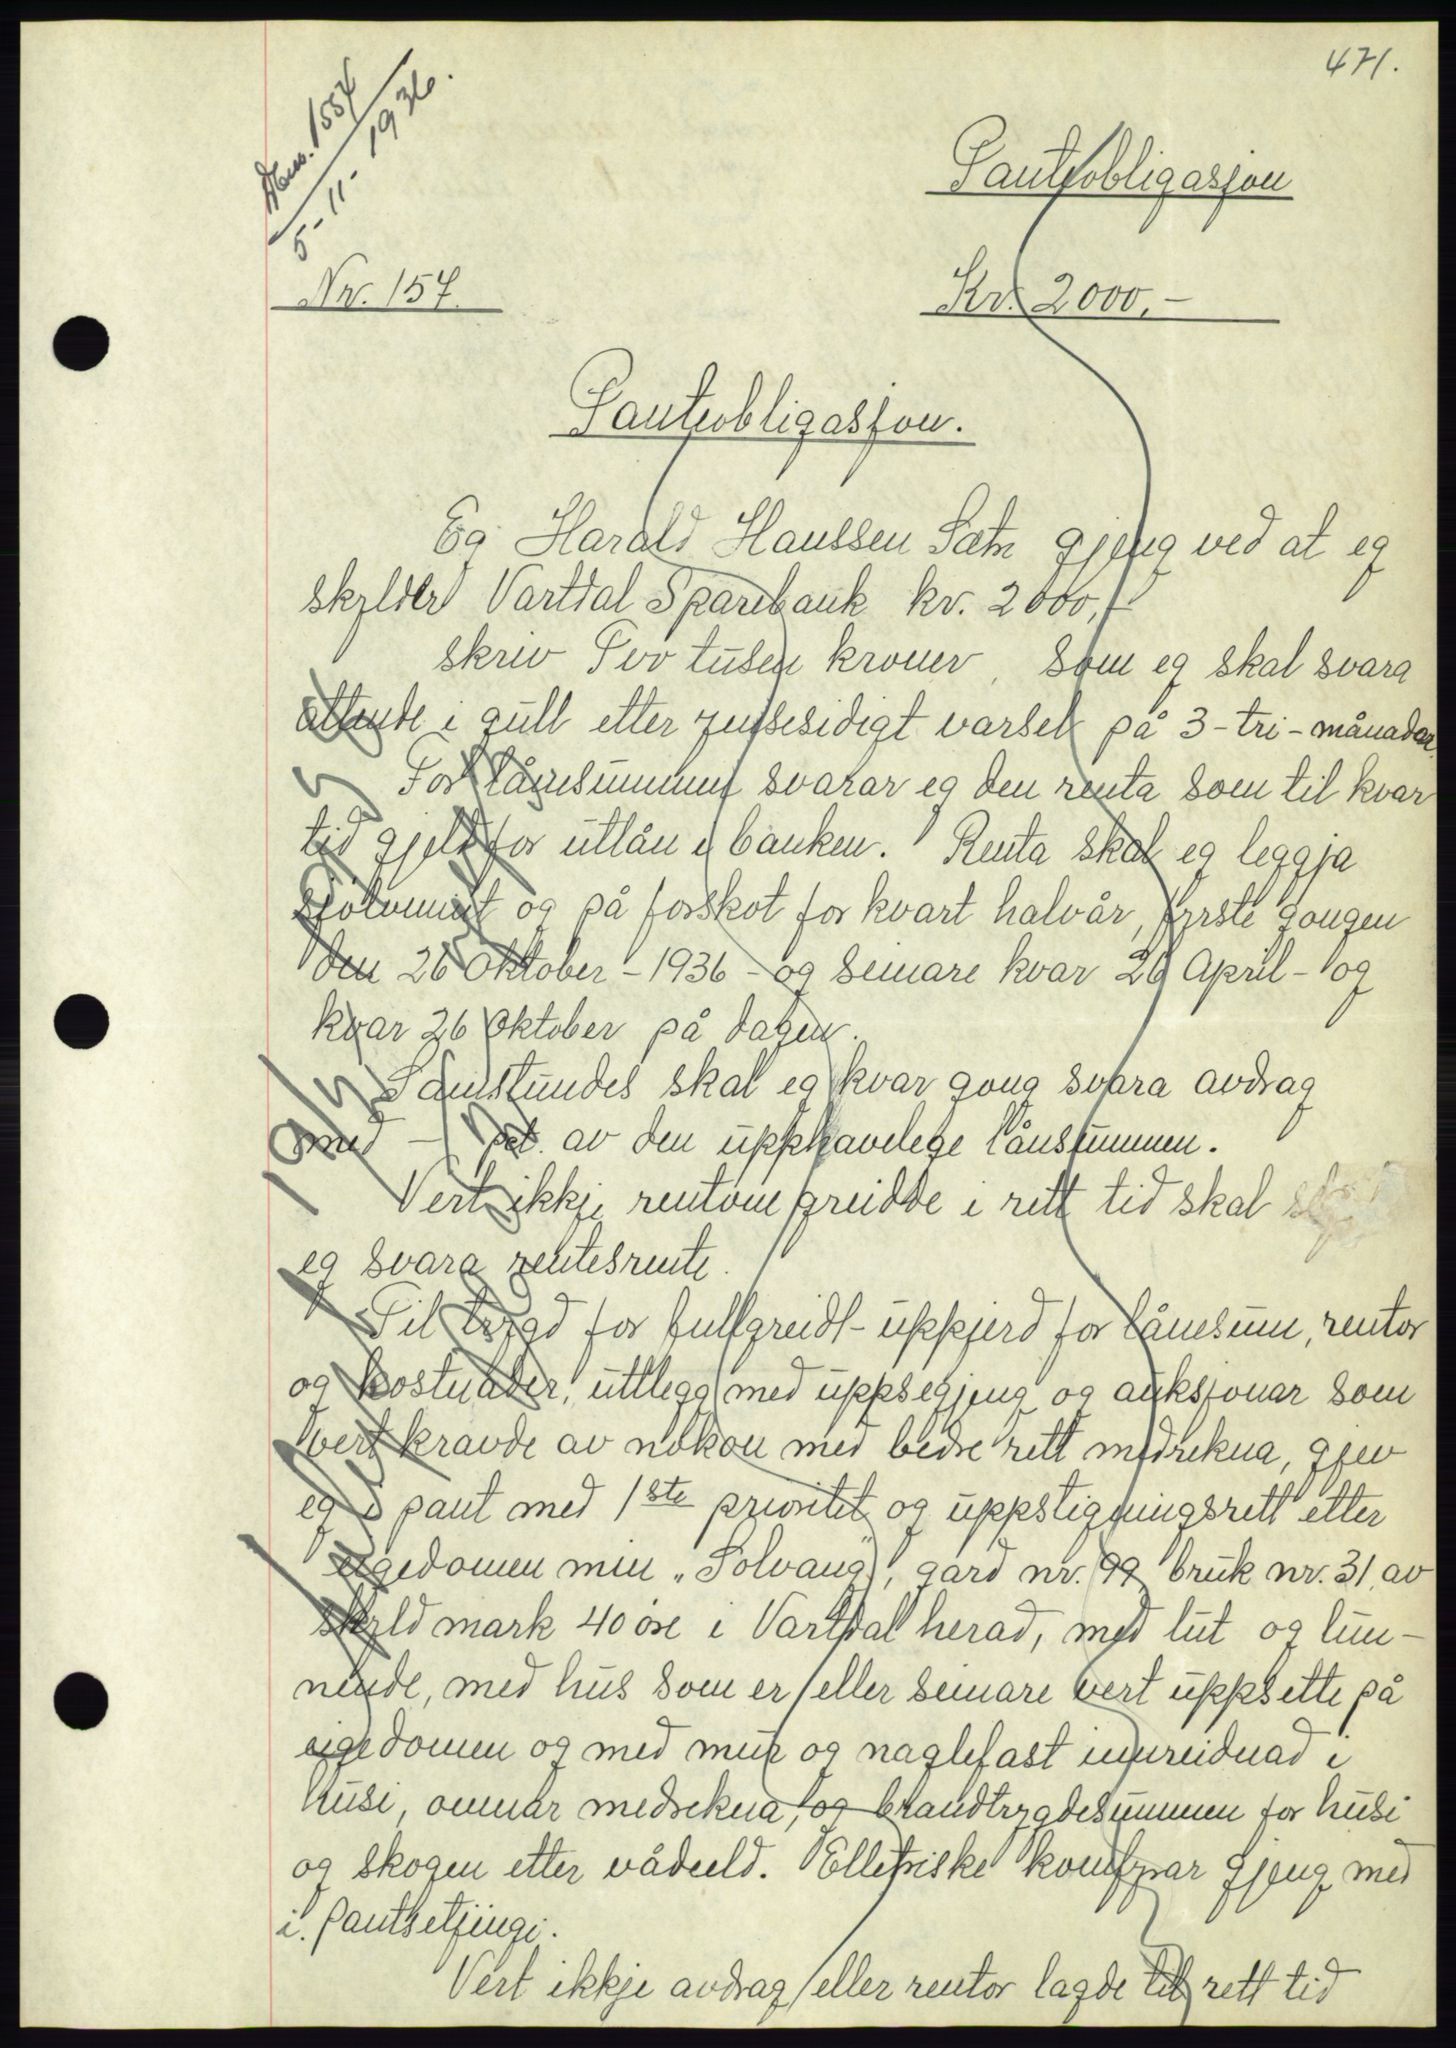 471.
1554
5-11-1936.
Pantobligasjon
Nr. 157.
Kr. 2000,-
Pantobligasjon.
Eg Harald Hanssen Sætre gjeng ved at eg
skylder Vartdal Sparebank kr. 2000,-
skriv Tvo tusen kroner, som eg skal svara
attende i gull etter gjensesidigt varsel på 3-tri-månadar.
For lånesummen svarar eg den renta som til kvar
tid gjeld for utlån i banken. Renta skal eg leggja
sjølvmint og på forskot for kvart halvår, fyrste gongen
den 26 Oktober -1936- og seinare kvar 26 April- og
kvar 26 Oktober på dagen.
Samstundes skal eg kvar gong svara avdrag
med - pct. av den upphavelege lånsummen.
Vert ikkje rentone greidde i rett tid skal
eg svara rentesrente.
Til trygd for fullgreidt-uppgjerd for lånesum, rentor
og kostnader, uttlegg med uppsegjeng og auksjonar som
vert kravde av nokon med bedre rett medrekna, gjev
eg i pant med 1ste prioritet og uppstigningsrett etter
eigedomen min "Solvang", gard nr. 99, bruk nr. 31, av
skyld mark 40 øre i Vartdal herad, med lut og lun-
nende, med hus som er eller seinare vert uppsette på
eigedomen og med mur og naglefast innreidnad i
husi, omnar medrekna, og brandtrygdesummen for husi
og skogen etter vådeeld. Elletriske komfyrar gjeng med
i pantsetjingi.
Vert ikkje avdrag eller rentor lagde til rett tid